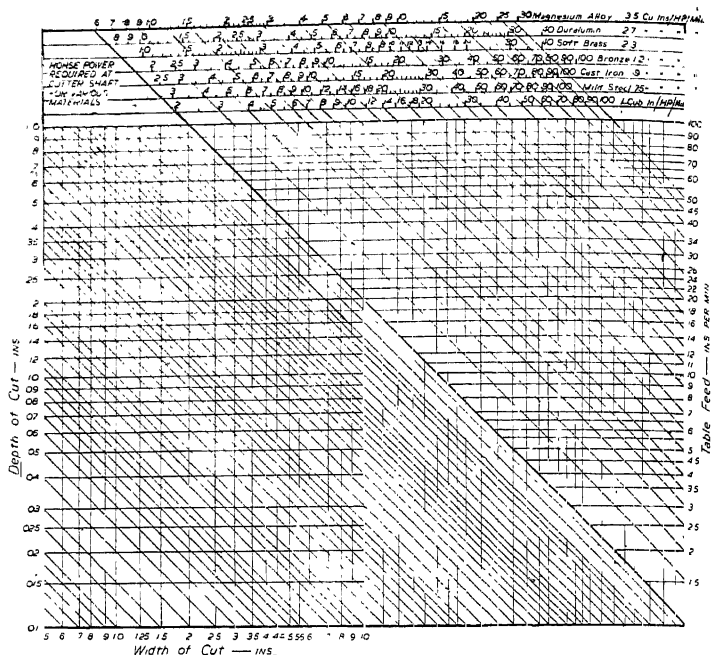 6 7 8 9 10 1.5 2 2.5 3 4 5 6 7 8 9 10 15 20 25 30 Magnesium Alloy 3.5 Cu Ins/HP/Min
8 9 10 1.5 2 2.5 3 4 5 6 7 8 9 10 15 20 30 40 Duralumn 2.7 " "
10 1.5 2 3 4 5 6 7 8 9 10 30 40 50 Soft Brass 2.3
HORSE POWER REQUIRED AT CUTTER SHAFT FOR VARIOUS MATERIALS
3 4 5 6 7 8 9 10 20 30 40 50 60 70 80 90 100 Bronze 1.2 "
2.5 3 4 5 6 7 8 9 10 15 20 30 40 50 60 70 80 90 100 Cast Iron .9 "
3 4 5 6 7 8 9 10 12 14 16 18 20 30 40 50 60 70 80 90 100 Mild Steel .75 "
2 3 4 5 6 7 8 9 10 12 14 16 18 20 30 40 50 60 70 80 90 100 1 Cub In/HP/Min
Depth of Cut — INS
10
9
8
7
6
5
4
3.5
3
2.5
2
1.8
1.6
1.4
1.2
1.0
0.9
0.8
0.7
0.6
0.5
0.4
0.3
0.25
0.2
0.15
0.1
Table Feed — INS PER MIN
100
90
80
70
60
50
45
40
34
30
26
24
22
20
18
16
14
12
11
10
9
8
7
6
5
4.5
4
3.5
3
2.5
2
1.5
.5 .6 .7 .8 .9 1.0 1.25 1.5 2 2.5 3 3.5 4 4.5 5 5.5 6 7 8 9 10
Width of Cut — INS